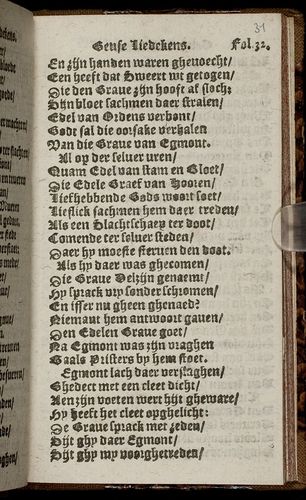 31
Geuse Liedekens. Fol.32.
En zijn handen waren ghewoecht/
Een heeft dat Sweert wt getogen/
Die den Graue zijn hooft af sloch:
Sijn bloet sachmen daer stralen/
Edel van Ordens verbont/
Godt sal die oorsake verhalen
Van die Graue van Egmont.
Al op der seluer uren/
Quam Edel van stam en Bloet/
Die Edele Graef van Hooren/
Liefhebbende Gods woort soet/
Lieflick sachmen hem daer treden/
Als een Slachtschaep ter doot/
Comende ter seluer steden/
Daer hy moeste steruen den doot.
Als hy daer was ghecomen/
Die Graue Delzijn genaemt/
Hy sprack vry sonder schromen/
En isser nu gheen ghenaed?
Niemant hem antwoort gauen/
Den Edelen Graue goet/
Na Egmont was zijn vraghen
Gaals Pristers by hem stoet.
Egmont lach daer verslaghen/
Ghedect met een cleet dicht/
Aen zijn voeten wert hijt gheware/
Hy heeft het cleet opghelicht:
De Graue sprack met zeden/
Sijt ghy daer Egmont/
Sijt ghy my voorghetreden/